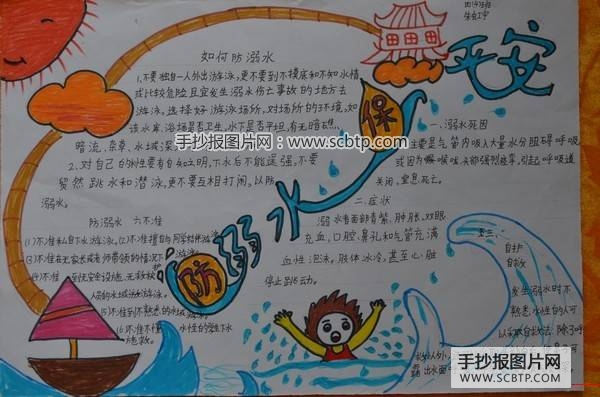 四(4)班
防溺水
保
平安
如何防溺水
1.不要独自一人外出游泳,更不要到不摸底和不知水情
或比较危险且宜发生溺水伤亡事故的地方去
游泳。选择好游泳场所,对场所的环境,如
该水库、浴场是否卫生,水下是否平坦,有无暗礁、
暗流、杂草、水域深
2.对自己的水性要有自知之明,下水后不能逞强,不要
贸然跳水和潜泳,更不要互相打闹,以防
溺水。
防溺水 六不准
(1)不准私自下水游泳。(2)不准擅自与同学结伴游泳。
(3)不准在无家长或老师带领的情况下游泳。
(4)不准
无安全设施、无救护
人员的水域游泳。
(5)不准到不熟悉的水域游泳
(6)不准不懂水性的学生下水
施救。
一.溺水死因
主要是气管内吸入大量水分阻碍呼吸
或因喉头强烈痉挛,引起呼吸道
关闭、窒息死亡。
二.症状
溺水者面部青紫、肿胀、双眼
充血,口腔、鼻孔和气管充满
血性泡沫。肢体冰冷,甚至心脏
停止跳动。
三.
自护
自救
发生溺水时不
熟悉水性的人可
以采取自救法:除了呼
救以外,
露出水面
手抄报图片网
www.scbtp.com
手抄报图片网
WWW.SCBTP.COM